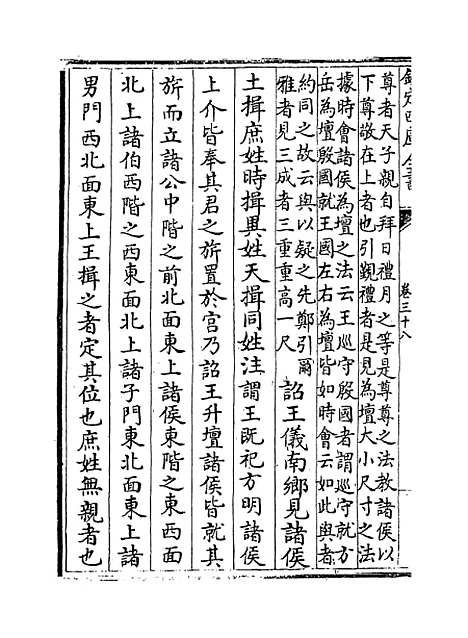 欽定四庫全書
卷三十八
尊者天子親自拜日禮月之等是尊尊之法教諸侯以
下尊敬在上者也引覲禮者是見為壇大小尺寸之法
據時會諸侯為壇之法云王巡守殷國者謂巡守就方
岳為壇殷國就王國左右為壇皆如時會云如此與者
約同之故云與以疑之先鄭引爾
雅者見三成者三重重高一尺
詔王儀南鄉見諸侯
土揖庶姓時揖異姓天揖同姓注謂王既祀方明諸侯
上介皆奉其君之旂置於宮乃詔王升壇諸侯皆就其
旂而立諸公中階之前北面東上諸侯東階之東西面
北上諸伯西階之西東面北上諸子門東北面東上諸
男門西北面東上王揖之者定其位也庶姓無親者也